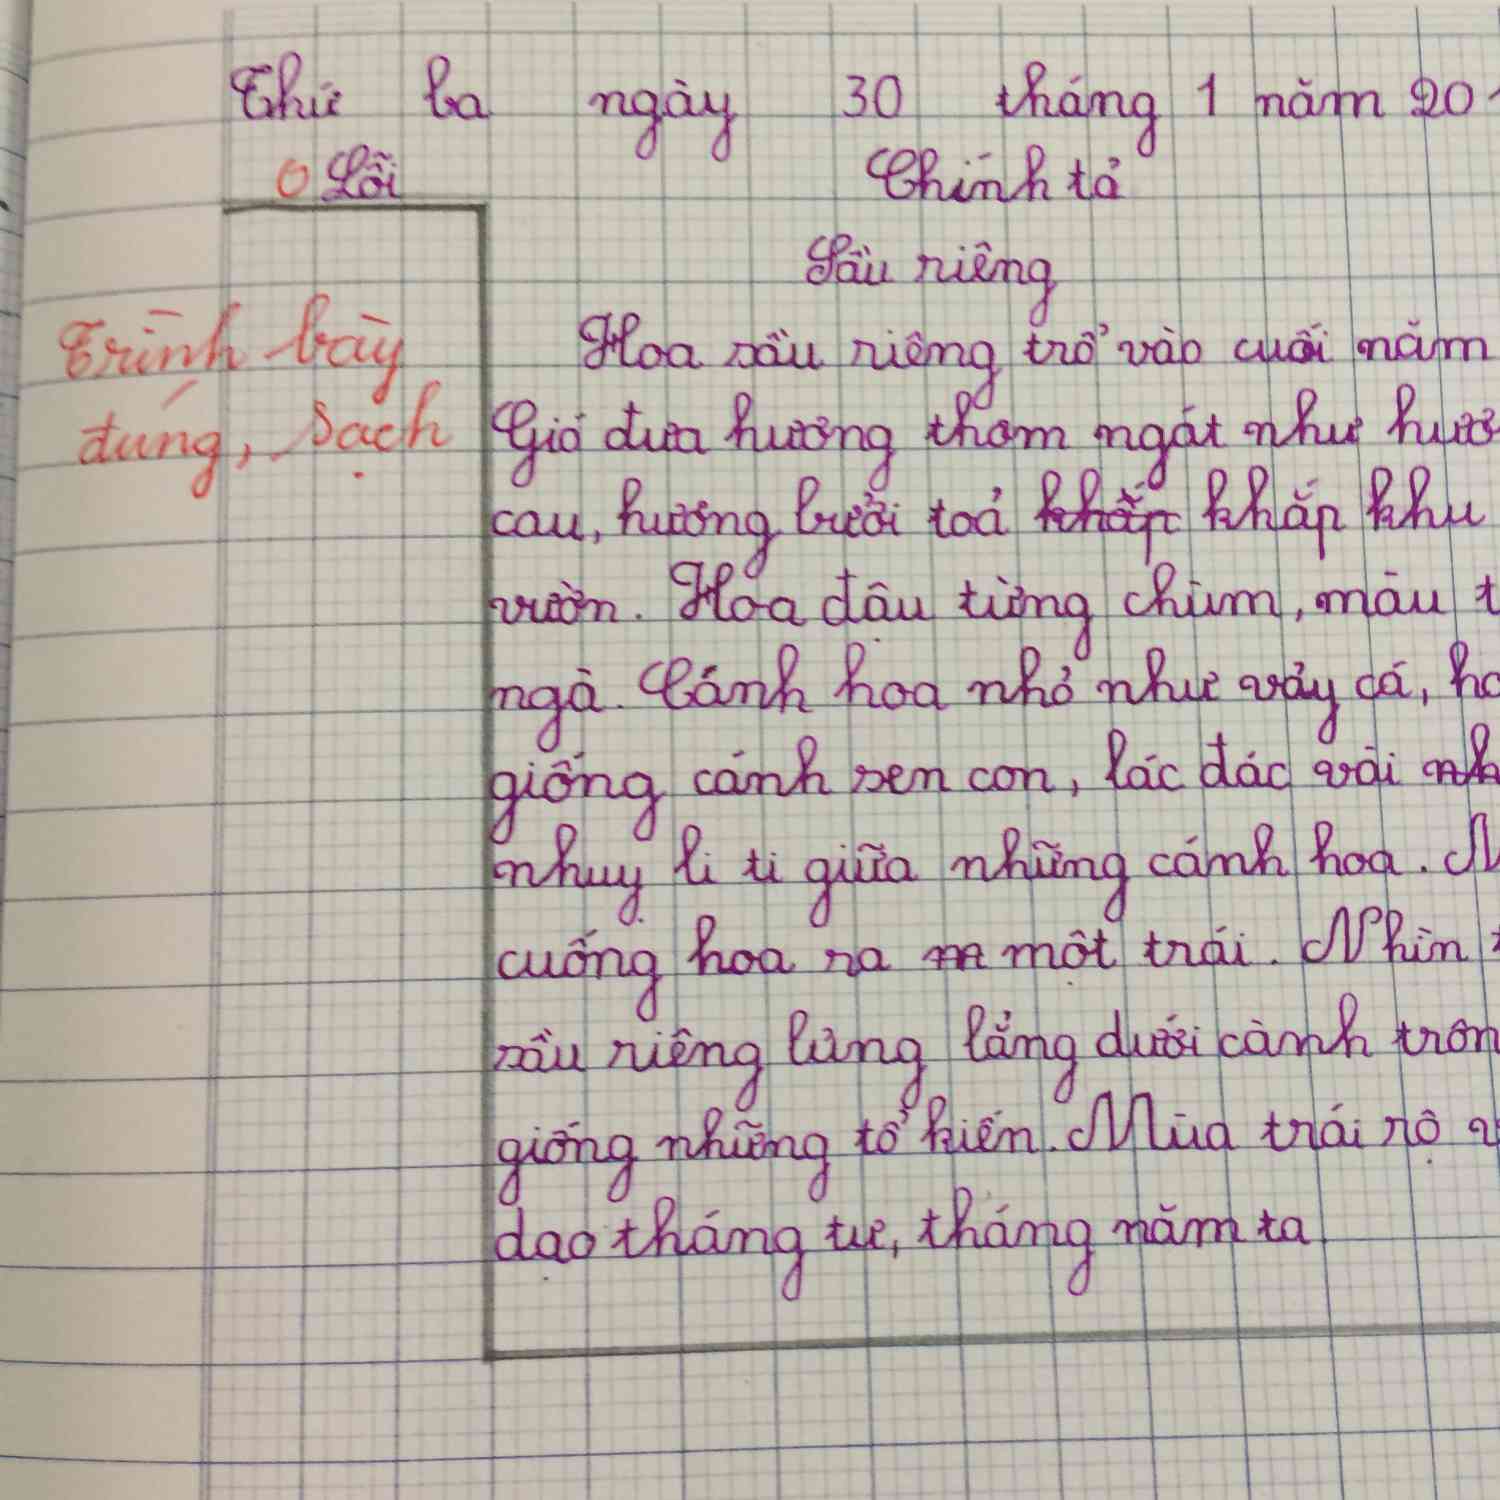 Thứ ba ngày 30 tháng 1 năm 20
0 Lỗi Chính tả
Sầu riêng
Trình bày
đúng, sạch
Hoa sầu riêng trổ vào cuối năm
Gió đưa hương thơm ngát như hươ
cau, hương bưởi toả khắp khắp khu
vườn. Hoa đậu từng chùm, màu t
ngà. Cánh hoa nhỏ như vảy cá, ha
giống cánh sen con, lác đác vài nh
nhuỵ li ti giữa những cánh hoa. M
cuống hoa ra m một trái. Nhìn t
sầu riêng lủng lẳng dưới cành trôn
giống những tổ kiến. Mùa trái rộ v
dạo tháng tư, tháng năm ta